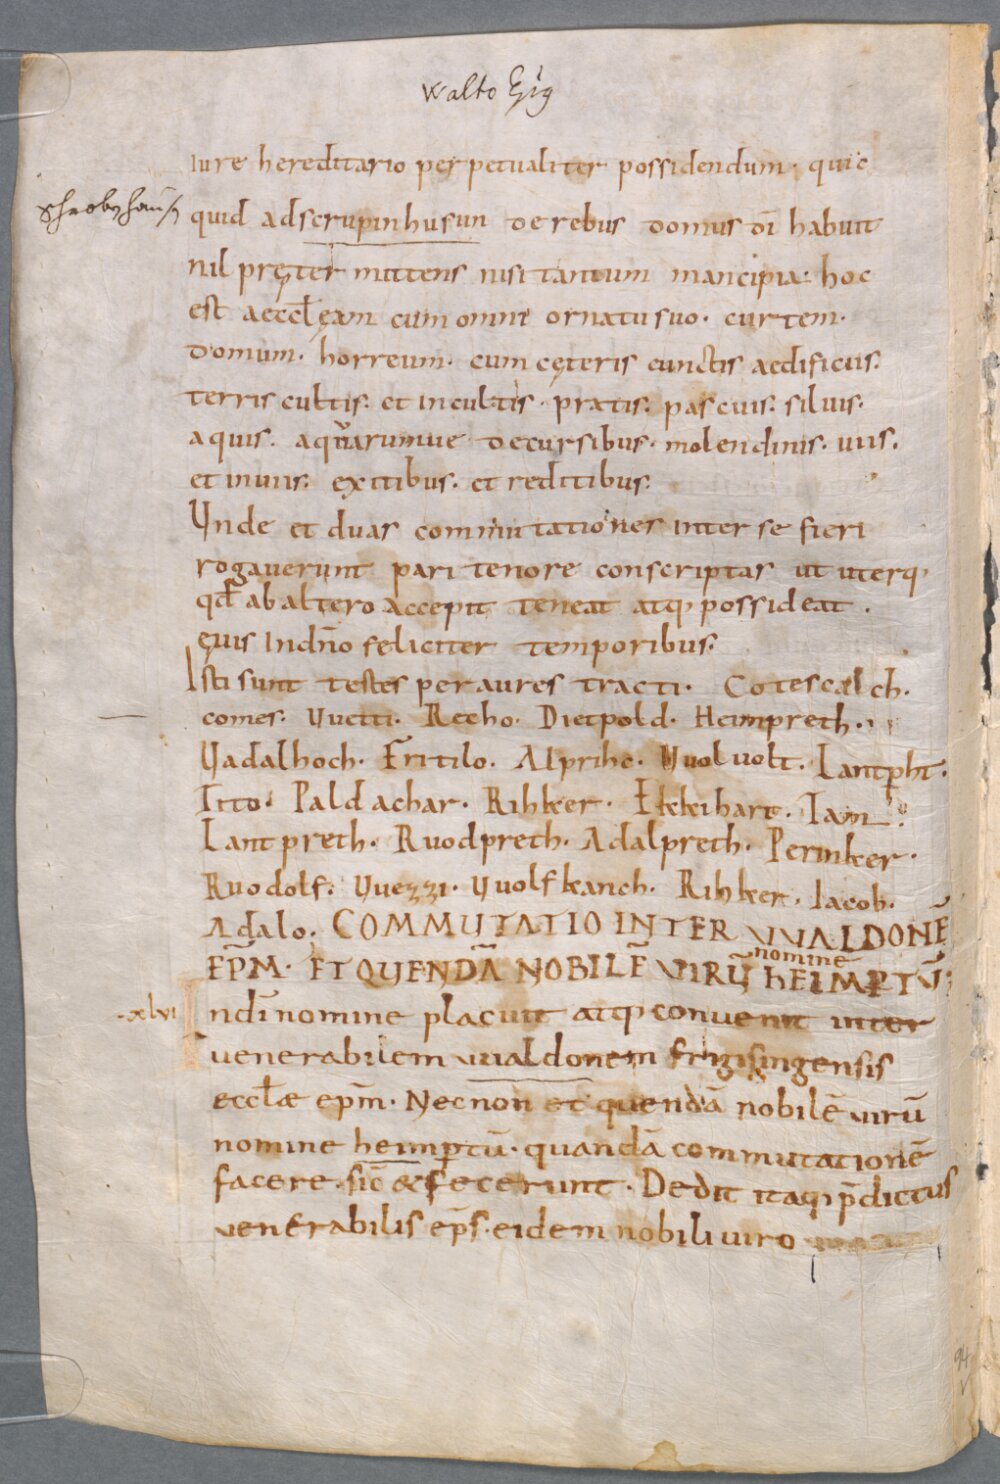 walto
iure hereditario perpetualiter possidendum · quic
quid adscrupinhusun de rebus domus dī habuit
nil pręter mittens nisi tantum mancipia: hoc
est aeccl̄ęam cum omni ornatu suo · curtem ·
domum · horreum · cum cęteris cunctis aedificiis ·
terris cultis · et incultis · pratis · pascuis · siluis ·
aquis · aquarumue decursibus · molendinis · uiis ·
et inuiis · exitibus · et reditibus ·
Unde et duas commutationes inter se fieri
rogauerunt pari tenore conscriptas ut uterq;
qđ ab altero accepit teneat atq; possideat ·
ęuis Indn̄o feliciter temporibus ·
Isti sunt testes per aures tracti · Cotescalch ·
comes · Uuetti · Recho · Dietpold · Heimpreth ·
Uadalhoch · Fritilo · Alprihc · Uuoluolt · Lantp̄ht ·
Itto · Paldachar · Rihker · Ekkihart ·
Lantpreth · Ruodpreth · Adalpreth · Perinker ·
Ruodolf · Uuezzi · Uuolfkanch · Rihker · Iacob ·
Adalo · COMMUTATIO INTER UUALDONĒ
EP̄M · ET QUENDĀ NOBILĒ VIRŪ nomine HEIMP̄TŪ;
xlvi Indī nomine placuit atq; conuenit inter
uenerabilem uualdonem frigisingensis
eccl̄ae ep̄m · Necnon et quendā nobilē uirū
nomine heimp̄tū · quandā commutationē
facere · sic̄ & fecerunt · Dedit itaq; p̄dictus
uenerabilis ep̄s · eidem nobili uiro
94
v